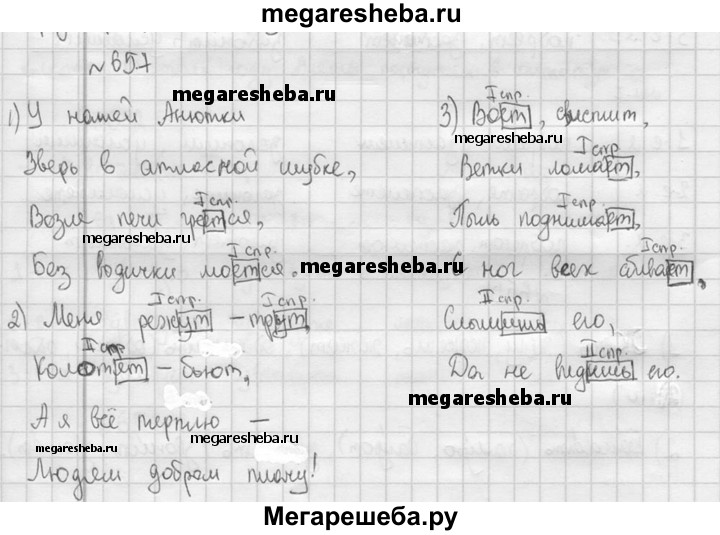 megaresheba.ru
№657
megaresheba.ru
1) У нашей Анютки
Зверь в атласной шубке,
I спр.
Возле печи греется,
megaresheba.ru
I спр.
Без водички моется.
megaresheba.ru
I спр. I спр.
2) Меня режут – трут,
II спр.
Колотят – бьют,
А я всё терплю –
megaresheba.ru
megaresheba.ru
Людям добром плачу!
I спр.
3) Воет, свистит,
megaresheba.ru
I спр.
Ветки ломает,
I спр.
Пыль поднимает,
I спр.
С ног всех сбивает,
II спр.
Слышишь его,
II спр.
Да не видишь его.
megaresheba.ru
Мегарешеба.ру